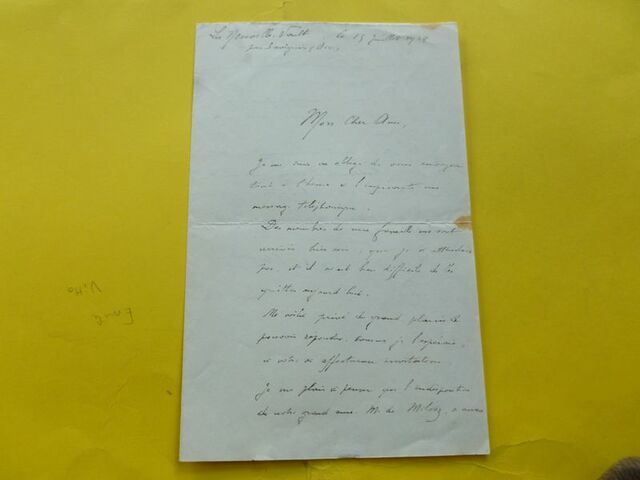 La Neuville-Vault le 15 juillet 19
par Savignies (Oise)
Mon cher Ami,
Je me suis vu obligé de vous envoyer
tout à l'heure à l'improviste un
message téléphonique.
Des membres de ma famille me sont
arrivés hier soir, que je n'attendais
pas, et il m'était bien difficile de les
quitter aujourd'hui.
Me voilà privé du grand plaisir de
pouvoir répondre, comme je l'espérais,
à votre si affectueuse invitation.
Je me plais à penser que l'indisposition
de notre grand ami M. de Milosz, a